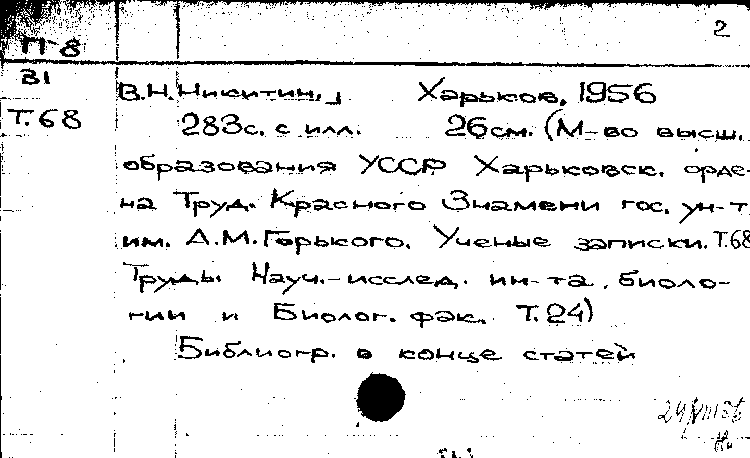 2
П-8
31
Т.68
В.Н.Никитин.] Харьков, 1956
283с. с илл. 26см. (М-во высш.
образования УССР Харьковск. орде-
на Труд. Красного Знамени гос. ун-т
им. А.М.Горького. Ученые записки. Т.68
Труды Науч.-исслед. ин-та биоло-
гии и Биолог. фак. Т.24)
Библиогр. в конце статей